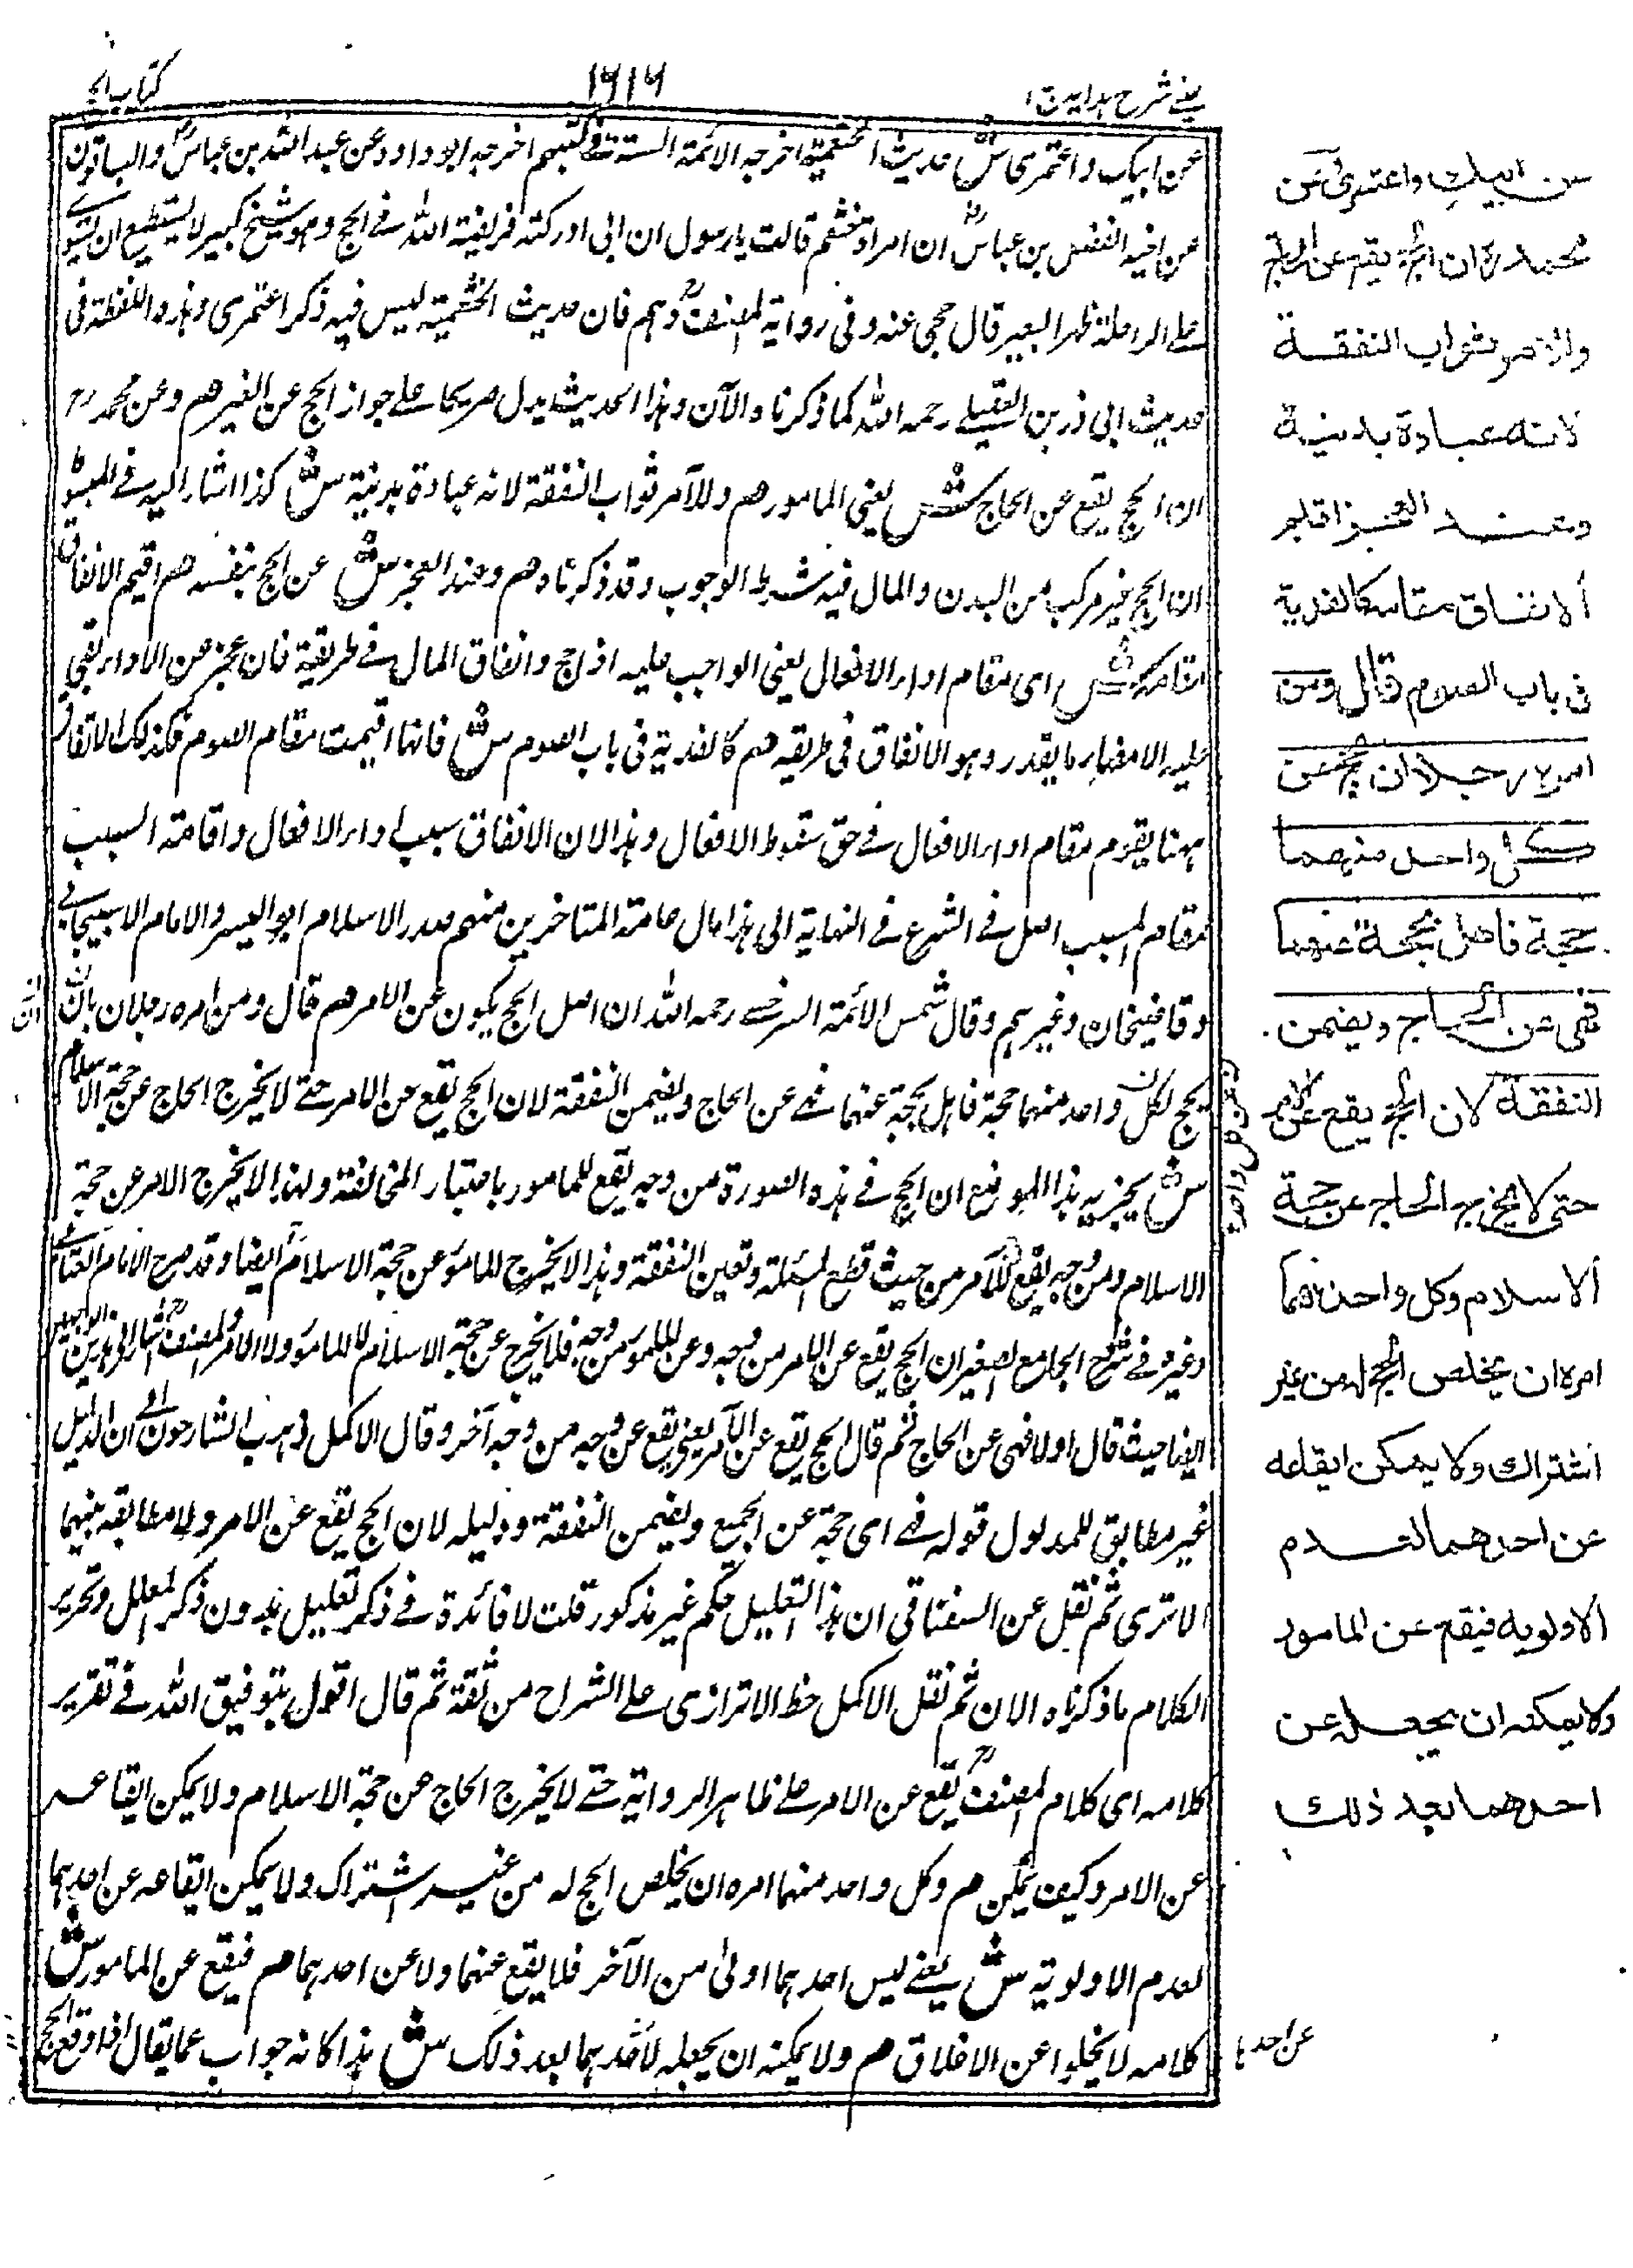 كتاب الحج
١٦١٦
عيني شرح هداية
عن ابيك واعتمري ش حديث الخثعمية اخرجه الائمة الستة في كتبهم اخرجه ابو داود عن عبد الله بن عباس والباقون
عن اخيه الفضل بن عباس ان امراة من خثعم قالت يا رسول ان ابي ادركته فريضة الله في الحج وهو شيخ كبير لا يستطيع ان يستوي
على الراحلة ظهر البعير قال حجي عنه وفي رواية المصنف وهم فان حديث الخثعمية ليس فيه ذكر اعتمري وهذه اللفظة في
حديث ابي ذر بن العقيلي رحمه الله كما ذكرناه الآن وهذا الحديث يدل صريحا على جواز الحج عن الغير هم وعن محمد رح
ان الحج يقع عن الحاج ش يعني المامور هم وللآمر ثواب النفقة لانه عبادة بدنية ش كذا اشار اليه في المبسوط
ان الحج غير مركب من البدن والمال فيه شرط الوجوب وقد ذكرناه هم وعند العجز ش عن الحج بنفسه هم اقيم الانفاق
مقامه ش اى مقام اداء الافعال يعني الواجب عليه اذا حج وانفاق المال في طريقة فان عجز عن الاداء بقي
عليه الامضاء ما يقدر وهو الانفاق في طريقه هم كالفدية في باب الصوم ش فانها اقيمت مقام الصوم فكذلك الانفاق
ههنا يقوم مقام اداء الافعال في حق سقوط الافعال وهذا لان الانفاق سبب لاداء الافعال واقامة السبب
مقام المسبب اصل في الشرع في النهاية الى هذا مال عامة المتاخرين منهم صدر الاسلام ابو اليسر والامام الاسبيجابي
وقاضيخان وغيرهم وقال شمس الائمة السرخسي رحمه الله ان اصل الحج يكون عن الامر هم قال ومن امره رجلان بان
يحج لكل واحد منهما حجة فاهل بحجة عنهما فهي عن الحاج ويضمن النفقة لان الحج يقع عن الامر حتى لا يخرج الحاج عن حجة الاسلام
ش يخبر به هذا الموضع ان الحج في هذه الصورة من وجه يقع للمامور باعتبار المخالفة ولهذا لا يخرج الامر عن حجة
الاسلام ومن وجه يقع للآمر من حيث قطع المسئلة وتعين النفقة وهذا لا يخرج المامور عن حجة الاسلام ايضا وقد صرح الامام العتابي
وغيره في شرح الجامع الصغير ان الحج يقع عن الامر من وجه وعن المامور من وجه فلا يخرج عن حجة الاسلام لا المامور ولا الامر والمصنف اشار الى هذين الوجهين
ايضا حيث قال اولا فهي عن الحاج ثم قال الحج يقع عن الآمر يعني يقع عن وجه من وجه آخر وقال الاكمل ذهب الشارحون الى ان الدليل
غير مطابق للمدلول قوله فهي اى حجة عن الجميع ويضمن النفقة ودليله لان الحج يقع عن الامر ولا مطابقه بينهما
الا ترى ثم نقل عن السغناقي ان هذا التعليل حكم غير مذكور قلت لا فائدة في ذكر تعليل بدون ذكر المعلل وتحرير
الكلام ما ذكرناه الان ثم نقل الاكمل حط الاترازي على الشراح من ثقة ثم قال اقول بتوفيق الله في تقرير
كلامه اى كلام المصنف يقع عن الامر على ظاهر الرواية حتى لا يخرج الحاج عن حجة الاسلام ولا يمكن ايقاعه
عن الامر وكيف يمكن هم وكل واحد منهما امره ان يخلص الحج له من غير اشتراك ولا يمكن ايقاعه عن احدهما
لعدم الاولوية ش يعني ليس احدهما اولى من الآخر فلا يقع عنهما ولا عن احدهما هم فيقع عن المامور ش
كلامه لا يخلوا عن الاغلاق هم ولا يمكنه ان يجعله لاحدهما بعد ذلك ش هذا كانه جواب عما يقال اذا وقع الحج
عن ابيك واعتمري عن
محمد رح ان الحج يقع عن الحاج
وللآمر ثواب النفقة
لانه عبادة بدنية
وعند العجز اقيم
الانفاق مقامه كالفدية
في باب الصوم قال ومن
امره رجلان ان يحج عن
كل واحد منهما
حجة فاهل بحجة عنهما
فهي عن الحاج ويضمن
النفقة لان الحج يقع عن الامر
حتى لا يخرج الحاج عن حجة
الاسلام وكل واحد منهما
امره ان يخلص الحج له من غير
اشتراك ولا يمكن ايقاعه
عن احدهما لعدم
الاولويه فيقع عن المامور
ولا يمكنه ان يجعله عن
احدهما بعد ذلك
عن احدهما